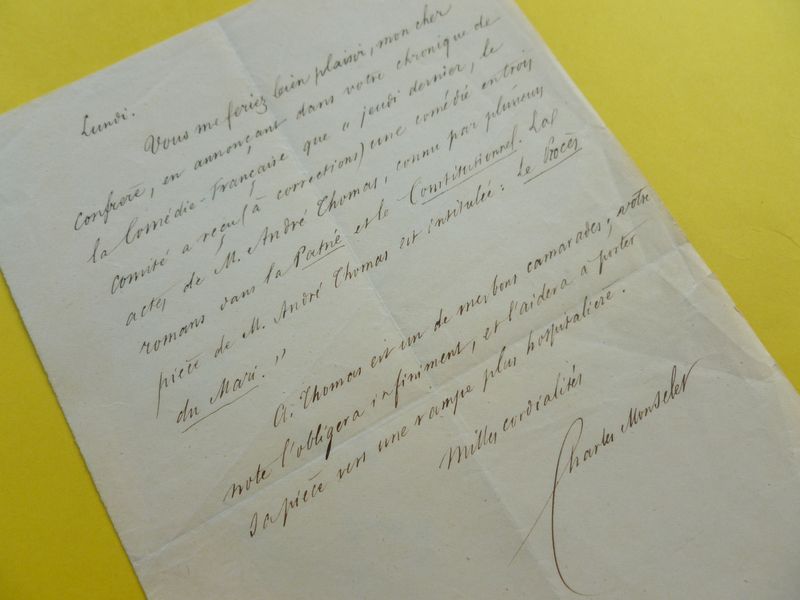 Lundi.
Vous me feriez bien plaisir, mon cher
confrère, en annonçant dans votre chronique de
la Comédie-Française que "jeudi dernier, le
comité a reçu (à corrections) une comédie en trois
actes, de M. André Thomas, connu par plusieurs
romans dans la Patrie et le Constitutionnel. La
pièce de M. André Thomas est intitulée: Le Procès
du Mari."
A. Thomas est un de mes bons camarades; votre
note l'obligera infiniment, et l'aidera à porter
sa pièce vers une rampe plus hospitalière.
Milles cordialités
Charles Monselet